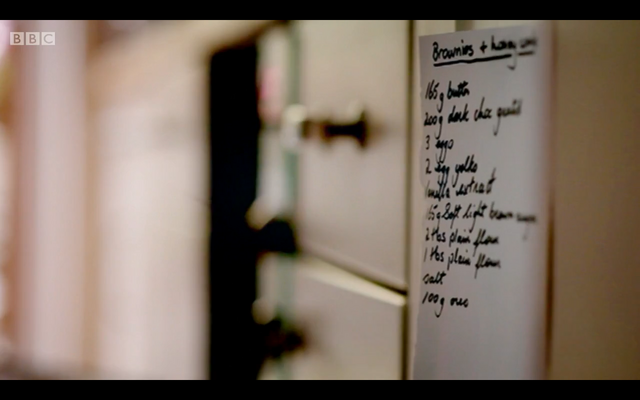 BBC
Brownies + honey
165g butter
200g dark choc
3 eggs
2 egg yolks
Vanilla extract
165g Soft light brown
2 tbs plain flour
1 tbs plain flour
salt
100g